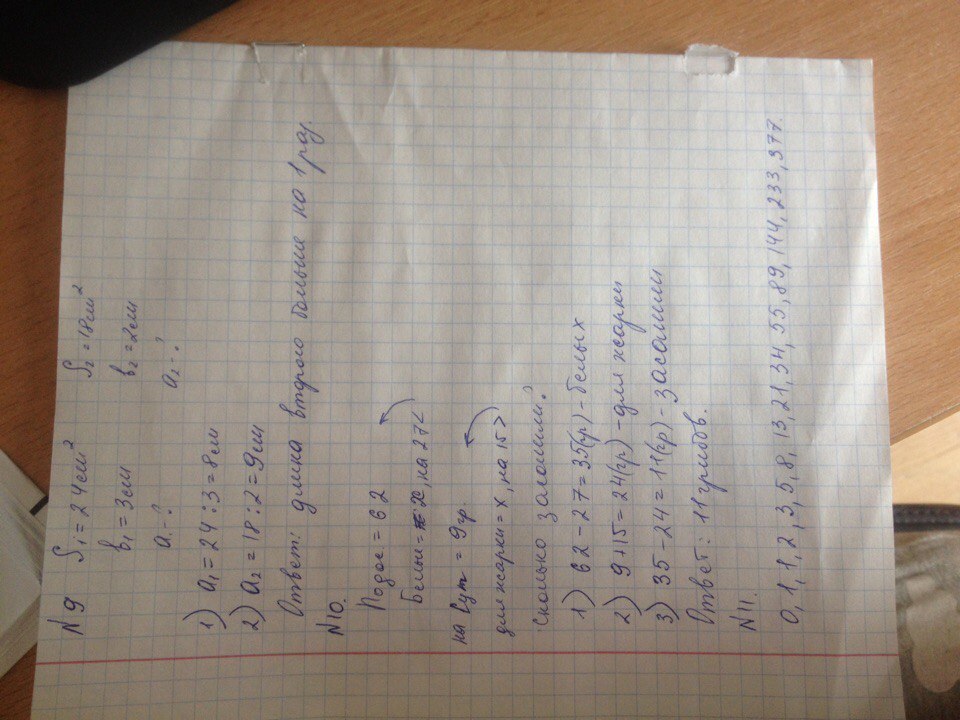 N 9 S₁ = 24 см² S₂ = 18 см²
b₁ = 3 см b₂ = 2 см
a₁ - ? a₂ - ?
1) a₁ = 24 : 3 = 8 см
2) a₂ = 18 : 2 = 9 см
Ответ: длина второго больше на 1 раз.
N 10.
Подос = 62
Белые = x, на 27 <
на Суп = 9 гр.
для жарки = x, на 15 >
Сколько засолили?
1) 62 - 27 = 35 (гр) - белых
2) 9 + 15 = 24 (гр) - для жарки
3) 35 - 24 = 11 (гр) - засолили
Ответ: 11 грибов.
N 11.
0, 1, 1, 2, 3, 5, 8, 13, 21, 34, 55, 89, 144, 233, 377.